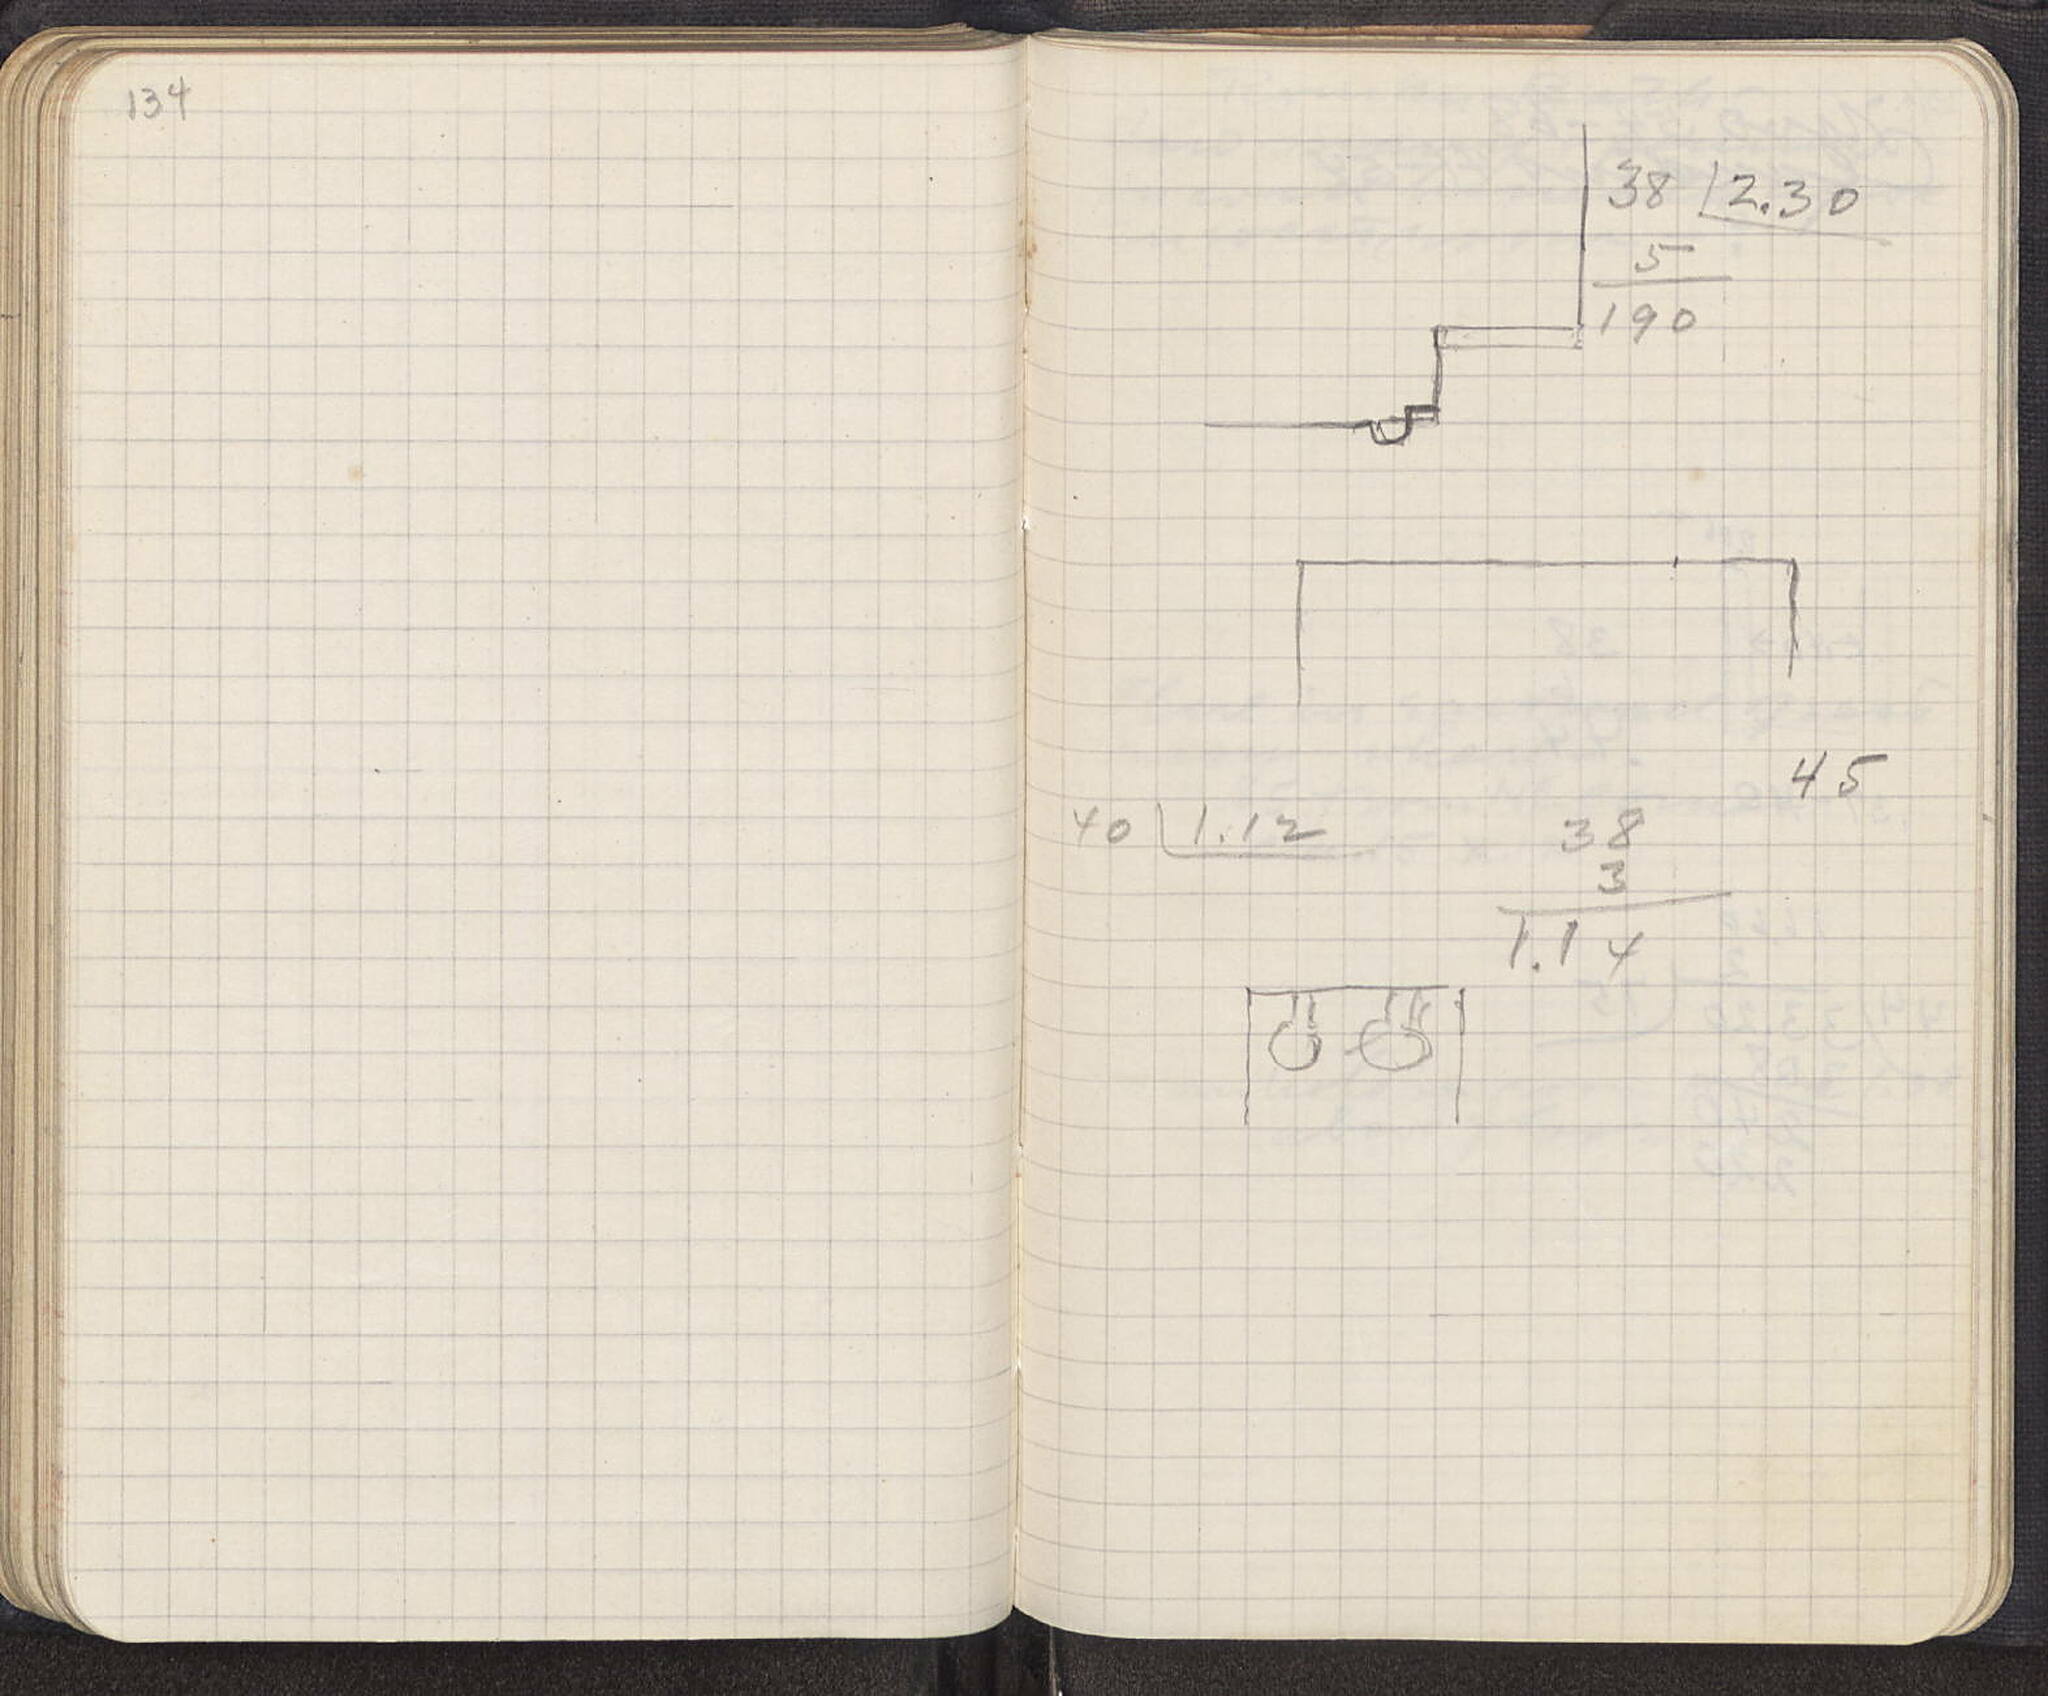 134
38 2.30
5
190
45
40 1.12
38
3
1.14